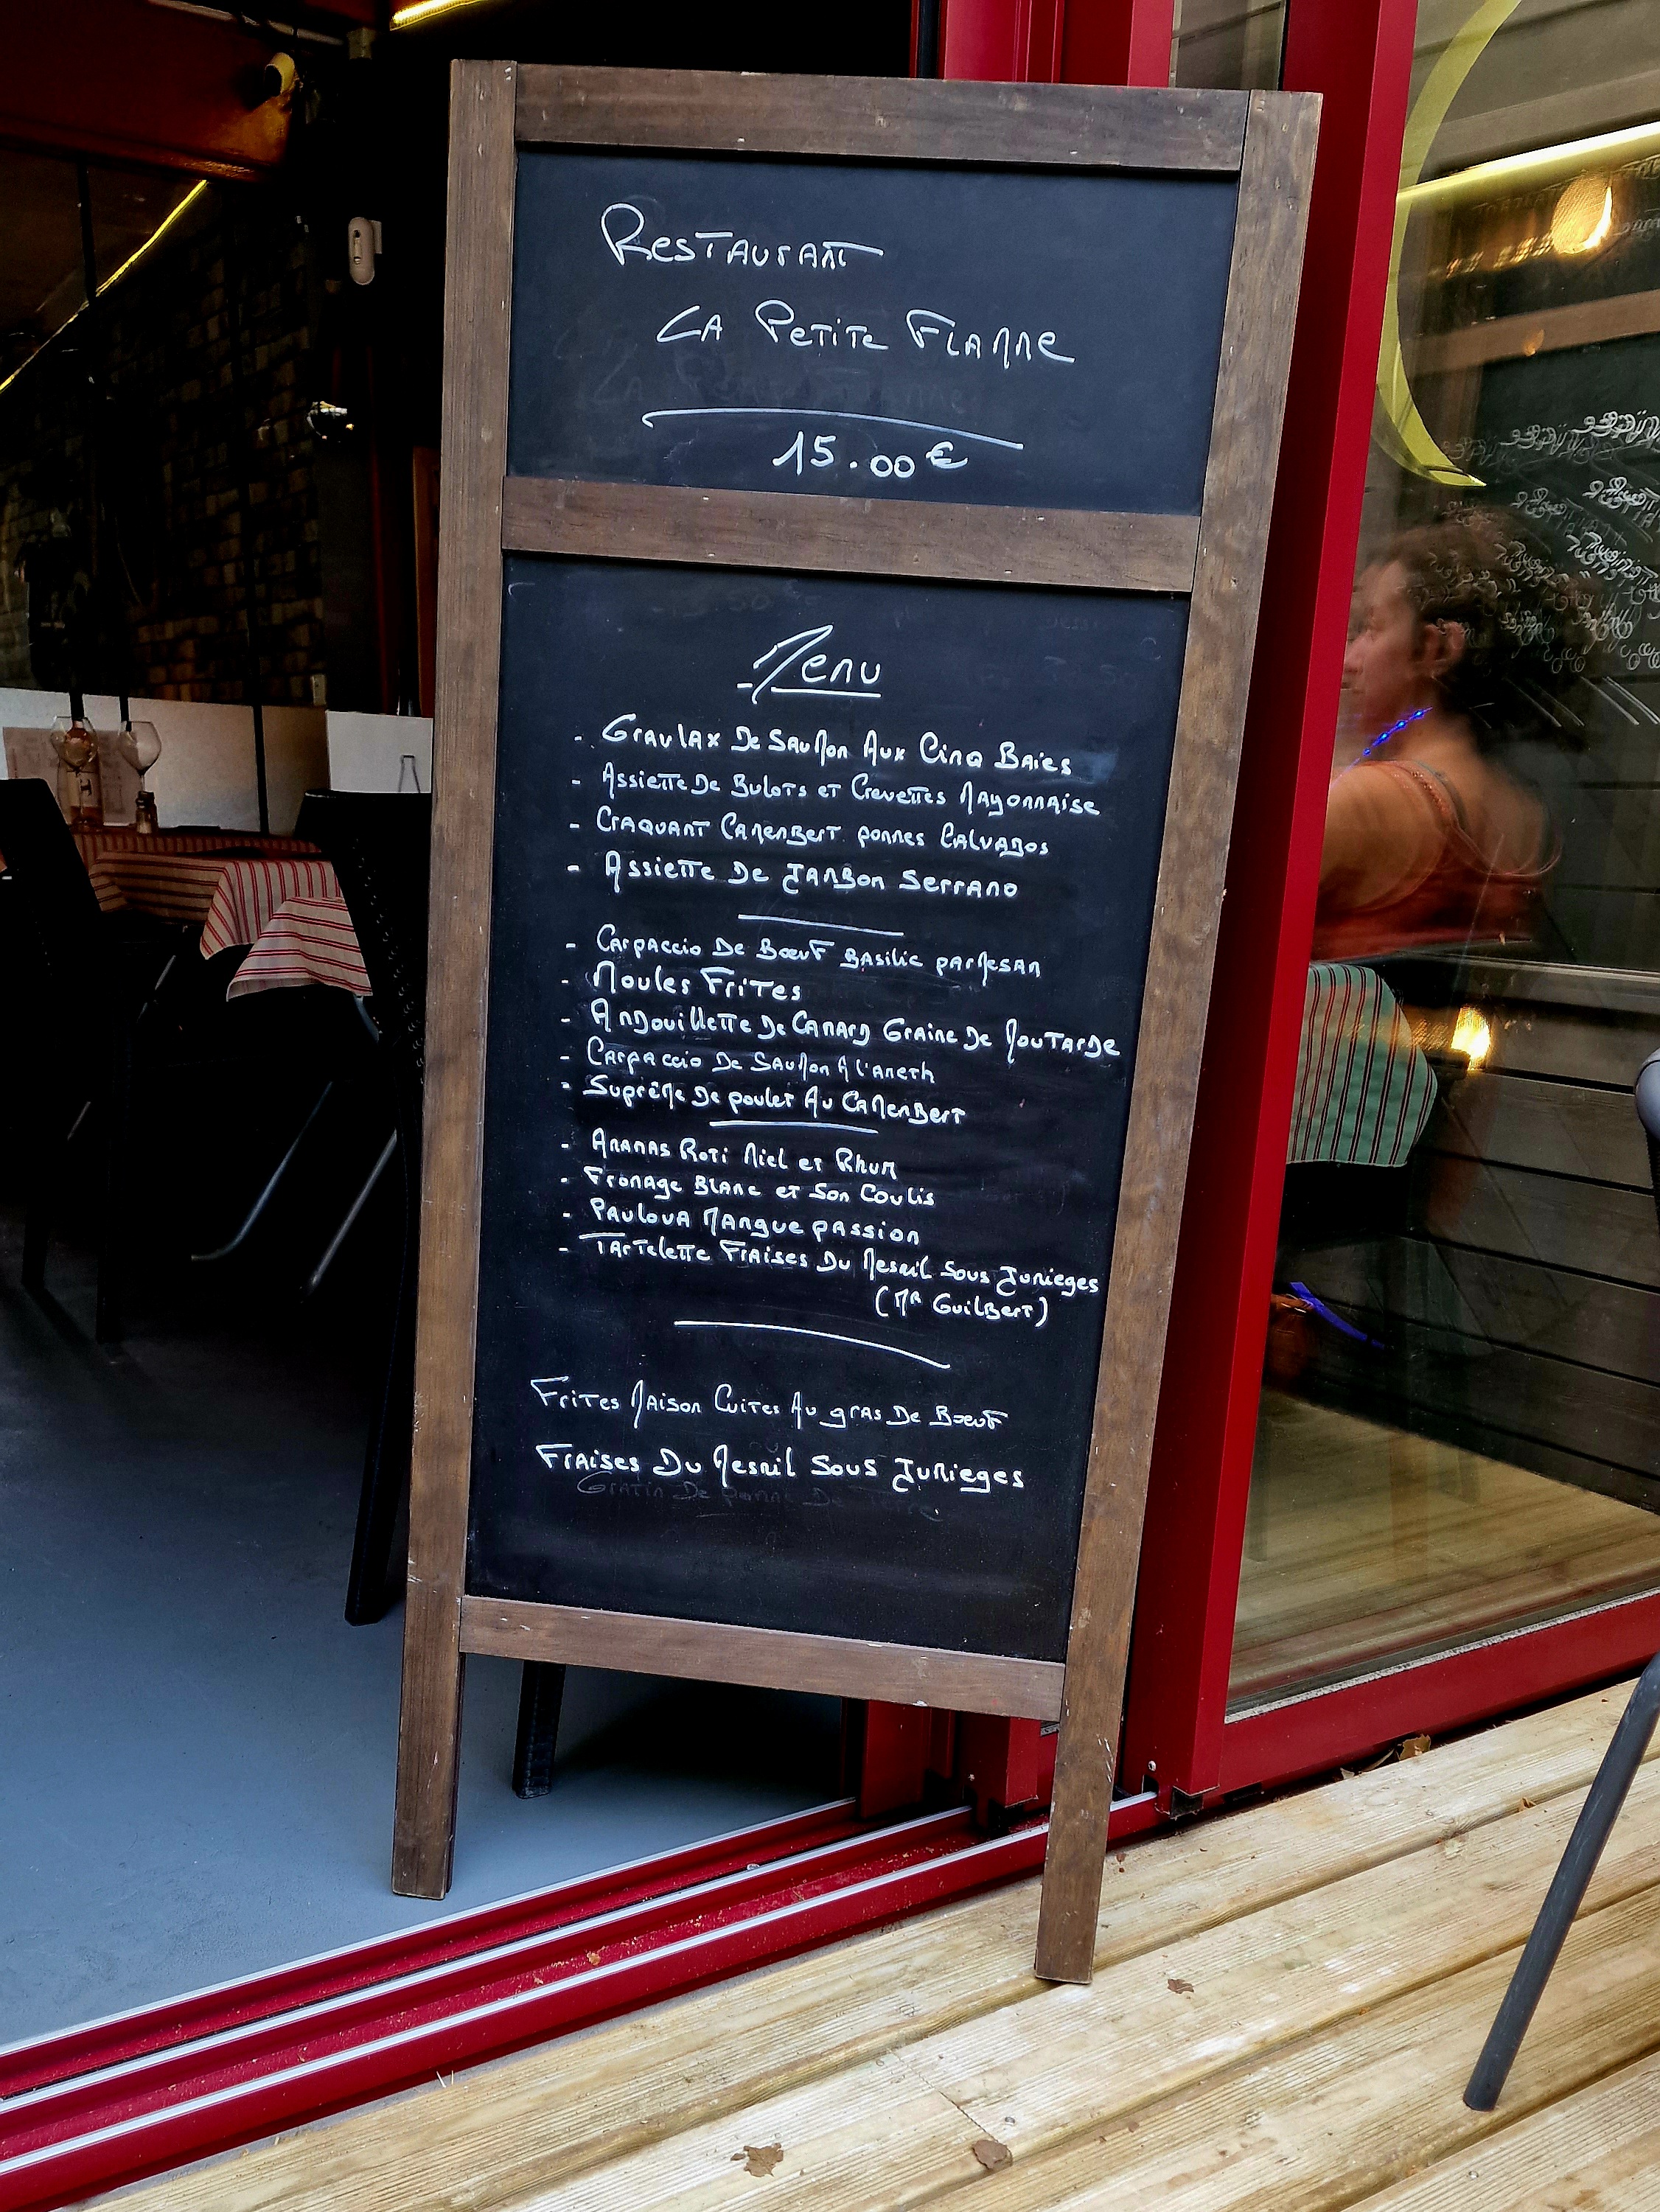 Restaurant
La Petite Flamme
15.00 €
Menu
- Gravlax De Saumon Aux Cinq Baies
- Assiette De Bulots et Crevettes Mayonnaise
- Craquant Camembert pommes Calvados
- Assiette De Jambon Serrano
- Carpaccio De Bœuf Basilic parmesan
- Moules Frites
- Andouillette De Canard Graine De Moutarde
- Carpaccio De Saumon A l'aneth
- Suprême De poulet Au Camembert
- Ananas Roti Miel et Rhum
- Fromage Blanc et Son Coulis
- Pavlova Mangue passion
- Tartelette Fraises Du Mesnil Sous Jumieges
(Mr Guilbert)
Frites Maison Cuites Au gras De Bœuf
Fraises Du Mesnil Sous Jumieges
Gratin De pomme De Terre